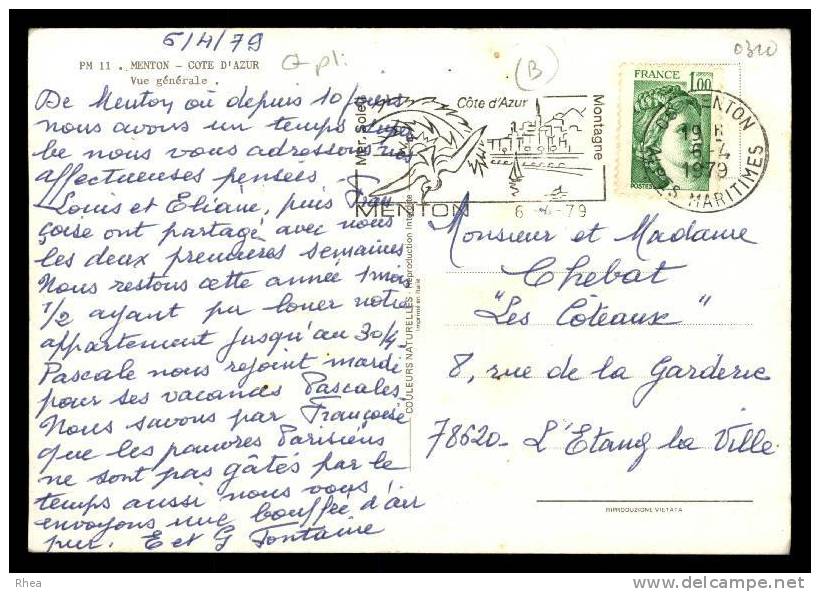 5/4/79
0320
+ pli
(B)
PM 11 . MENTON - COTE D'AZUR
Vue générale .
De Menton où depuis 10 jours
nous avons un temps super
be nous vous adressons nos
affectueuses pensées.
Louis et Eliane, puis Fran
çoise ont partagé avec nous
les deux premières semaines
Nous restons cette année 1 mois
1/2 ayant pu louer notre
appartement jusqu'au 30/4.
Pascale nous rejoint mardi
pour ses vacances Pascales,
Nous savons par Françoise
que les pauvres Parisiens
ne sont pas gâtés par le
temps aussi nous vous
envoyons une bouffée d'air
pur. E et G Fontaine
Mer, Soleil
Côte d'Azur
Montagne
MENTON
6 -4 -79
FRANCE
1,00
POSTES
06 MENTON
19 H
6-4
1979
ALPES MARITIMES
COULEURS NATURELLES - Reproduction Interdite
Imprimé en Italie
Monsieur et Madame
Chebat
"Les Côteaux"
8, rue de la Garderie
78620 - L'Etang la Ville
RIPRODUZIONE VIETATA
Rhea
www.delcampe.net